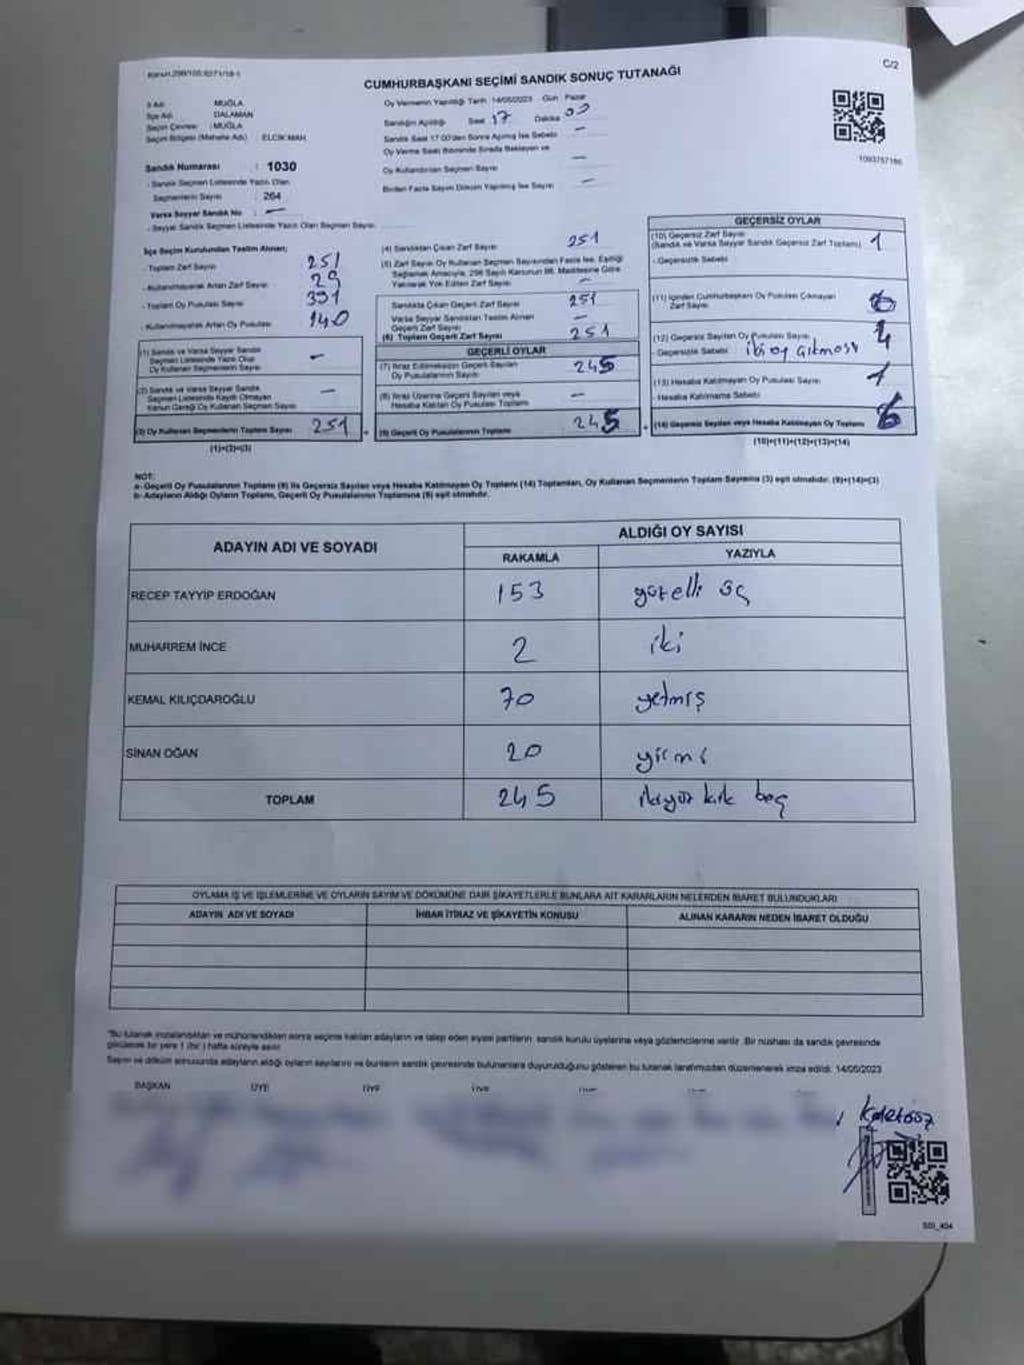 C/2
CUMHURBAŞKANI SEÇİMİ SANDIK SONUÇ TUTANAĞI
İl Adı : MUĞLA
İlçe Adı : DALAMAN
Seçim Çevresi : MUĞLA
Seçim Bölgesi (Mahalle Adı) : ELCİK MAH.
Sandık Numarası : 1030
- Sandık Seçmen Listesinde Yazılı Olan
Seçmenlerin Sayısı : 264
Varsa Seyyar Sandık No : —
- Seyyar Sandık Seçmen Listesinde Yazılı Olan Seçmen Sayısı:
Oy Vermenin Yapıldığı Tarih : 14/05/2023 Gün : Pazar
Sandığın Açıldığı Saat : 17 Dakika : 00
Sandık Saat 17:00'den Sonra Açılmış İse Sebebi : —
Oy Verme Saati Bitiminde Sırada Bekleyen ve
Oy Kullandırılan Seçmen Sayısı : —
Birden Fazla Sayım Döküm Yapılmış İse Sayısı : —
1093757186
İlçe Seçim Kurulundan Teslim Alınan;
- Toplam Zarf Sayısı : 251
- Kullanılmayarak Artan Zarf Sayısı : 29
- Toplam Oy Pusulası Sayısı : 391
- Kullanılmayarak Artan Oy Pusulası : 140
(1) Sandık ve Varsa Seyyar Sandık
Seçmen Listesinde Yazılı Olup
Oy Kullanan Seçmenlerin Sayısı : —
(2) Sandık ve Varsa Seyyar Sandık
Seçmen Listesinde Kayıtlı Olmayan
Kanun Gereği Oy Kullanan Seçmen Sayısı : —
(3) Oy Kullanan Seçmenlerin Toplam Sayısı : 251
(1)+(2)=(3)
(4) Sandıktan Çıkan Zarf Sayısı : 251
(5) Zarf Sayısı Oy Kullanan Seçmen Sayısından Fazla İse, Eşitliği
Sağlamak Amacıyla, 298 Sayılı Kanunun 98. Maddesine Göre
Yakılarak Yok Edilen Zarf Sayısı : —
Sandıkta Çıkan Geçerli Zarf Sayısı : 251
Varsa Seyyar Sandıktan Teslim Alınan
Geçerli Zarf Sayısı : —
(6) Toplam Geçerli Zarf Sayısı : 251
GEÇERLİ OYLAR
(7) İtiraz Edilmeksizin Geçerli Sayılan
Oy Pusulalarının Sayısı : 245
(8) İtiraz Üzerine Geçerli Sayılan veya
Hesaba Katılan Oy Pusulası Toplamı : —
(9) Geçerli Oy Pusulalarının Toplamı : 245
GEÇERSİZ OYLAR
(10) Geçersiz Zarf Sayısı : 1
(Sandık ve Varsa Seyyar Sandık Geçersiz Zarf Toplamı)
- Geçersizlik Sebebi :
(11) İçinden Cumhurbaşkanı Oy Pusulası Çıkmayan
Zarf Sayısı :
(12) Geçersiz Sayılan Oy Pusulası Sayısı : 4
- Geçersizlik Sebebi : iki oy çıkması
(13) Hesaba Katılmayan Oy Pusulası Sayısı : 1
- Hesaba Katılmama Sebebi :
(14) Geçersiz Sayılan veya Hesaba Katılmayan Oy Toplamı : 6
(10)+(11)+(12)+(13)=(14)
NOT:
a- Geçerli Oy Pusulalarının Toplamı (9) ile Geçersiz Sayılan veya Hesaba Katılmayan Oy Toplamı (14) Toplamları, Oy Kullanan Seçmenlerin Toplam Sayısına (3) eşit olmalıdır. (9)+(14)=(3)
b- Adayların Aldığı Oyların Toplamı, Geçerli Oy Pusulalarının Toplamına (9) eşit olmalıdır.
ADAYIN ADI VE SOYADI
ALDIĞI OY SAYISI
RAKAMLA YAZIYLA
RECEP TAYYİP ERDOĞAN 153 yüzelli üç
MUHARREM İNCE 2 iki
KEMAL KILIÇDAROĞLU 70 yetmiş
SİNAN OĞAN 20 yirmi
TOPLAM 245 ikiyüz kırk beş
OYLAMA İŞ VE İŞLEMLERİNE VE OYLARIN SAYIM VE DÖKÜMÜNE DAİR ŞİKAYETLERLE BUNLARA AİT KARARLARIN NELERDEN İBARET BULUNDUKLARI
ADAYIN ADI VE SOYADI İHBAR İTİRAZ VE ŞİKAYETİN KONUSU ALINAN KARARIN NEDEN İBARET OLDUĞU
*Bu tutanak imzalandıktan ve mühürlendikten sonra seçime katılan adayların ve talep eden siyasi partilerin sandık kurulu üyelerine veya gözlemcilerine verilir. Bir nüshası da sandık çevresinde
görülecek bir yere 1 (bir) hafta süreyle asılır.
Sayım ve döküm sonucunda adayların aldığı oyların sayılarını ve bunların sandık çevresinde bulunanlara duyurulduğunu gösteren bu tutanak tarafımızdan düzenlenerek imza edildi. 14/05/2023
BAŞKAN ÜYE ÜYE ÜYE